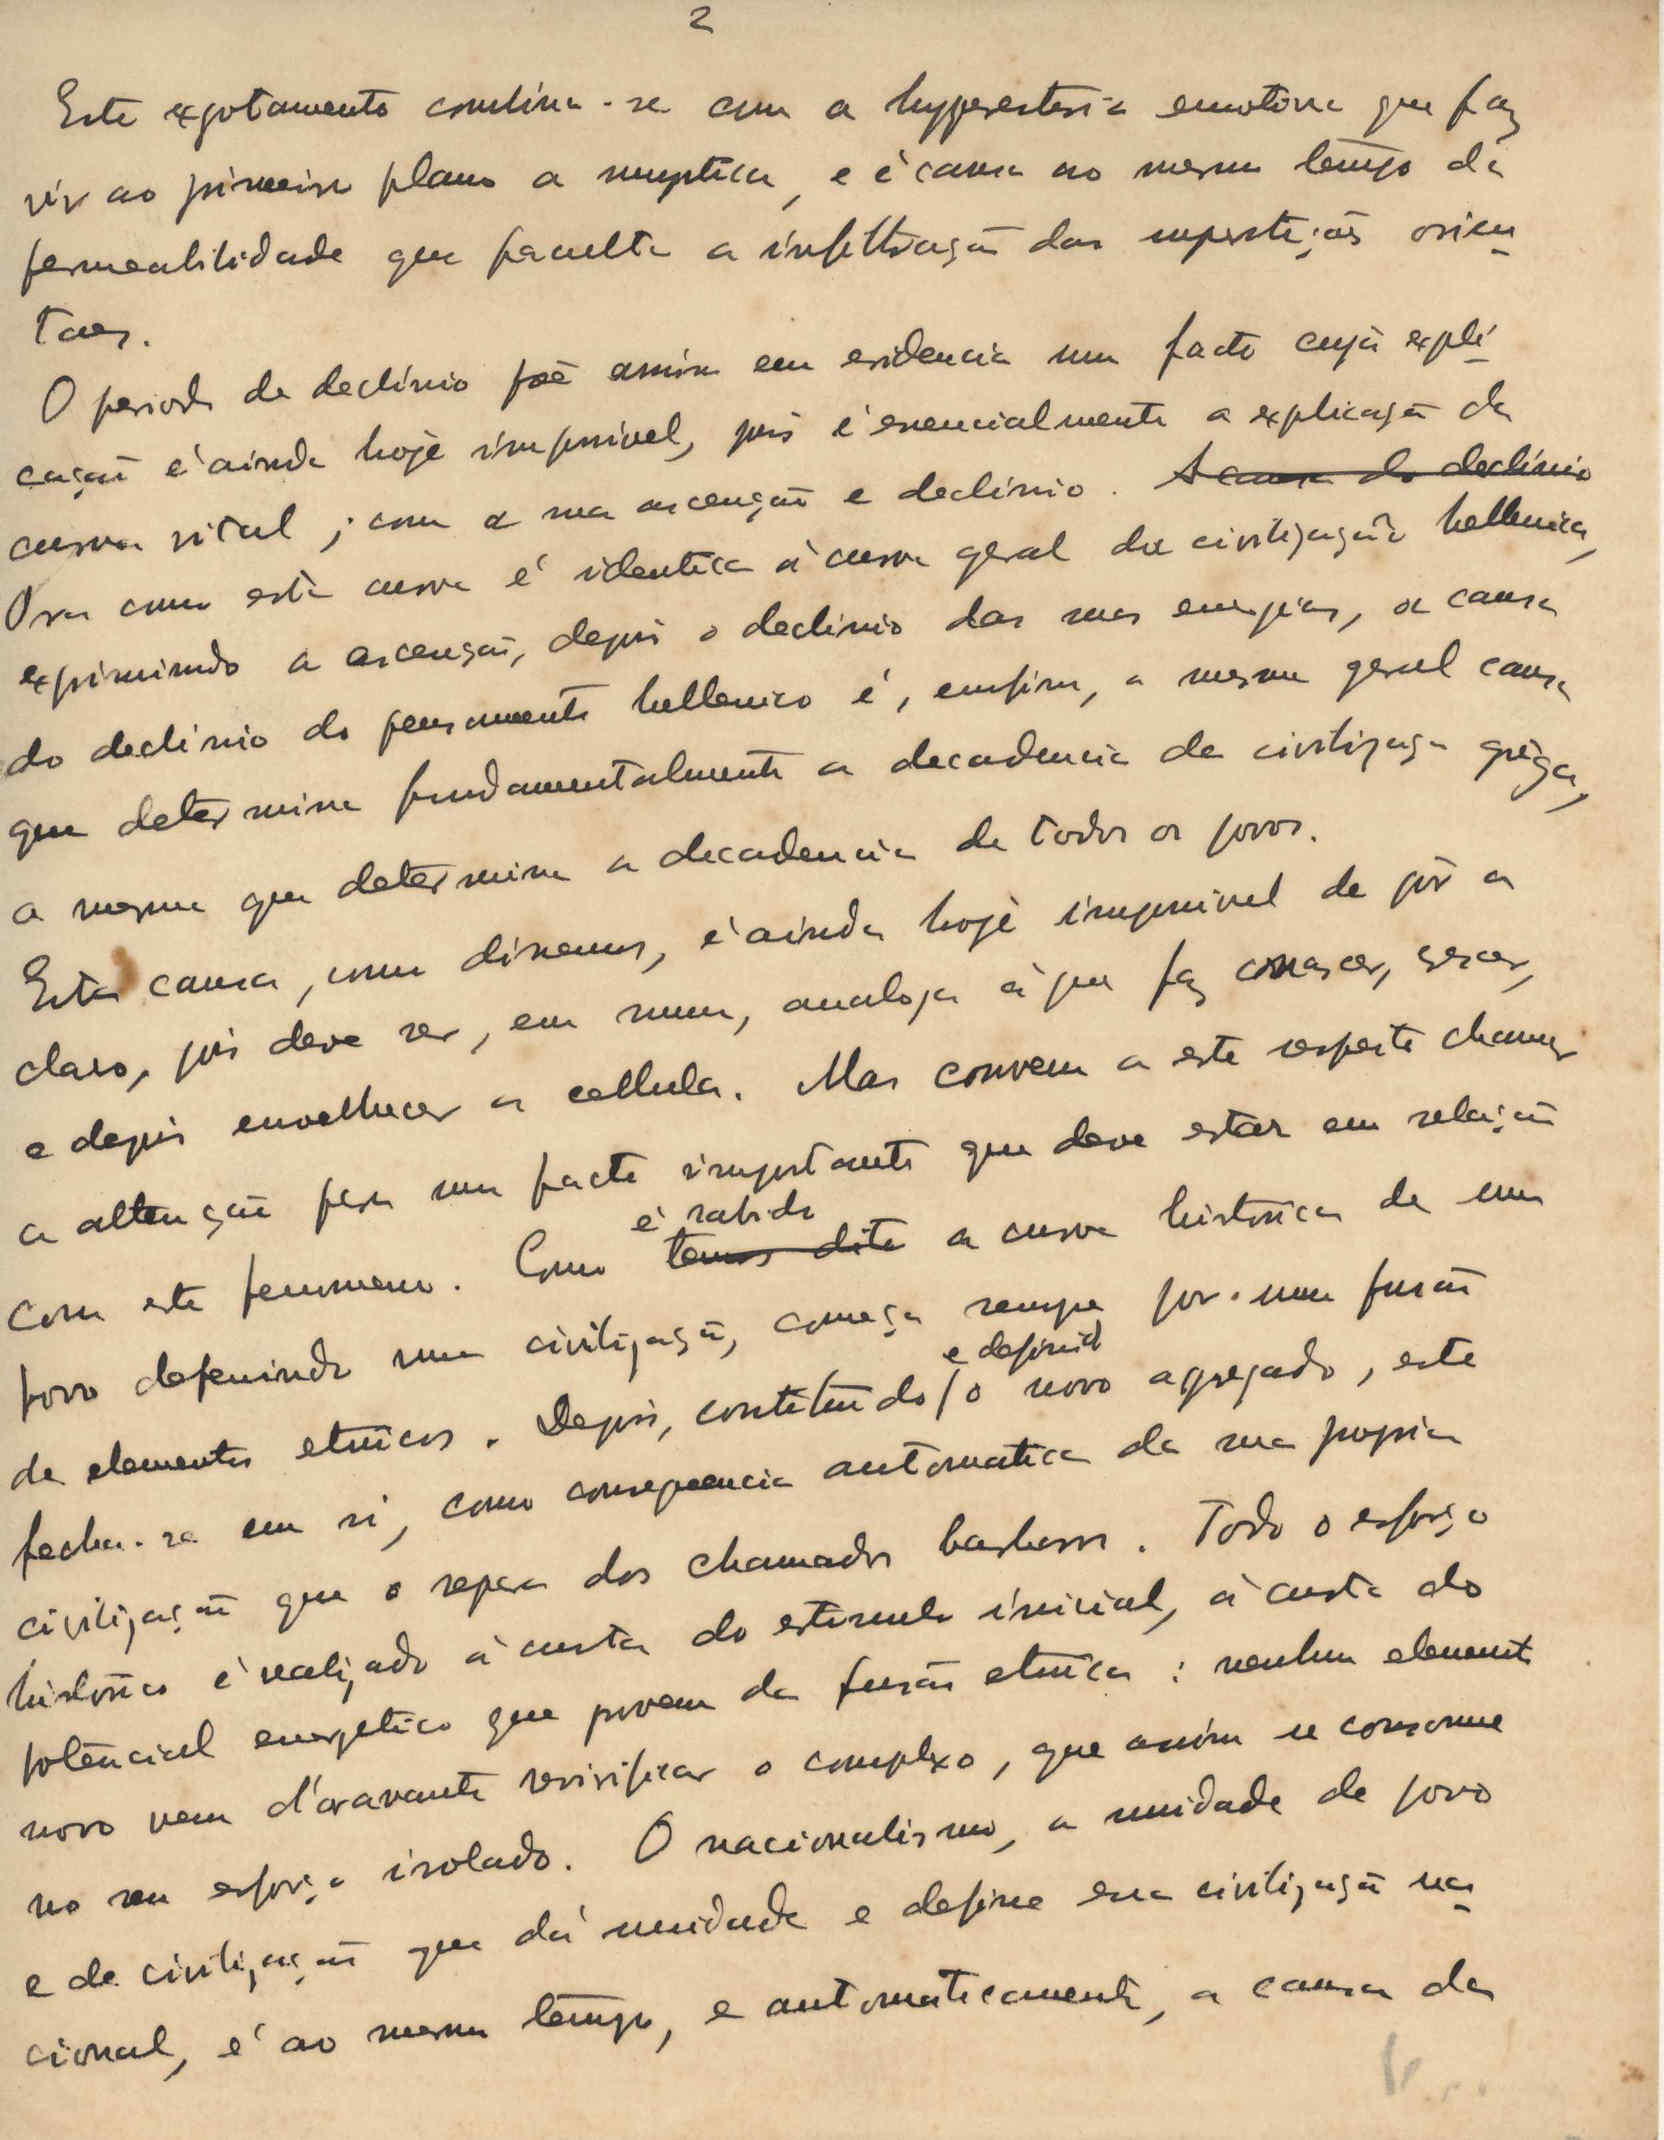 2
Este exgotamento combina-se com a hyperestesia emotiva que faz
vir ao primeiro plano a mystica, e é causa ao mesmo tempo da
permeabilidade que faculta a infiltração das superstições orien
taes.
O periodo de declinio põe assim em evidencia um facto cuja expli
cação é ainda hoje impossivel, pois é essencialmente a explicação da
curva vital, com a sua ascenção e declinio. A causa do declinio
Ora como esta curva é identica á curva geral da civilização hellenica,
exprimindo a ascenção, depois o declinio das suas energias, a causa
do declinio do pensamento hellenico é, emfim, a mesma geral causa
que determina fundamentalmente a decadencia da civilização grêga,
a mesma que determina a decadencia de todos os povos.
Esta causa, como dissemos, é ainda hoje impossivel de pôr a
claro, pois deve ser, em summa, analoga á que faz começar, crescer,
e depois envelhecer a cellula. Mas convem a este respeito chamar
a attenção para um facto importante que deve estar em relação
é sabido
com este fenomeno. Como temos dito a curva historica de um
povo definindo uma civilização, começa sempre por uma fusão
e definido
de elementos etnicos. Depois, constituido / o novo agregado, este
fecha-se em si, como consequencia automatica da sua propria
civilização que o separa dos chamados barbaros. Todo o esforço
historico é realizado á custa do estimulo inicial, á custa do
potencial energetico que provem da fusão etnica: nenhum elemento
novo vem d'oravante revivificar o complexo, que assim se consome
no seu esforço isolado. O nacionalismo, a unidade de povo
e de civilização que dá unidade e define essa civilização na
cional, é ao mesmo tempo, e automaticamente, a causa da